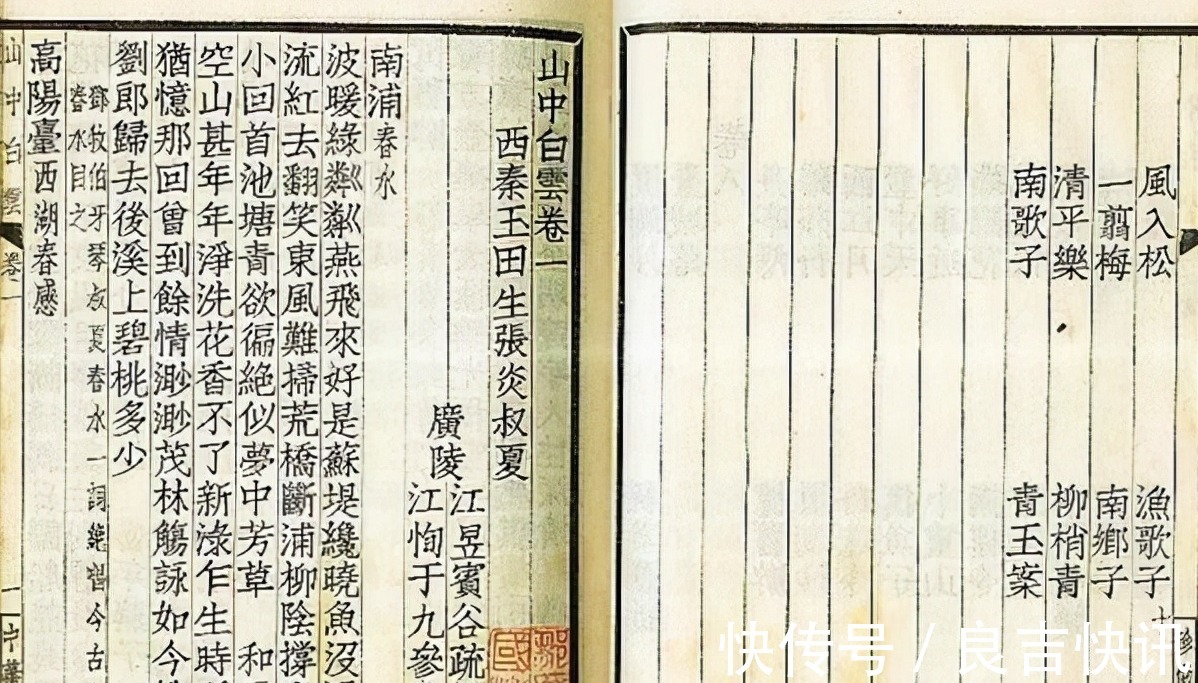 風入松 漁歌子
一翦梅 南鄉子
清平樂 柳梢青
南歌子 青玉案
山中白雲卷一
西秦玉田生張炎叔夏
廣陵
江昱賓谷疏
江恂于九參
南浦 春水
波暖綠粼粼燕飛來好是蘇堤纔曉魚沒
流紅去翻笑東風難掃荒橋斷浦柳陰撐
小回首池塘青欲徧絕似夢中芳草 和
空山甚年年淨洗花香不了新淥乍生時
猶憶那回曾到餘情渺渺茂林觴詠如今
劉郎歸去後溪上碧桃多少
鄧牧伯牙琴叔夏春水一詞絕唱今古
春水目之
高陽臺 西湖春感
山中白雲 卷一 一
快传号 / 良言快讯